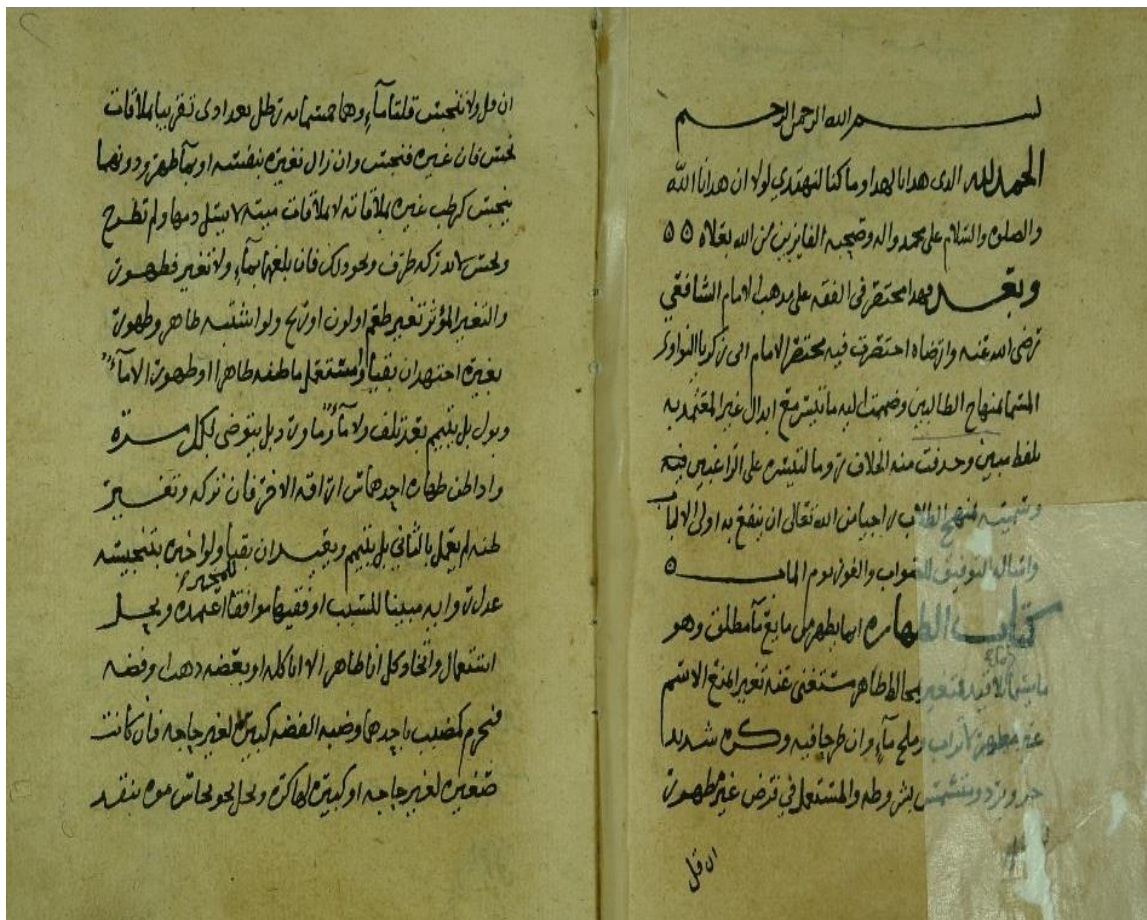 بسم الله الرحمن الرحيم
الحمد لله الذى هدانا لهدا وما كنا لنهتدي لولا ان هدانا الله
والصلوه والسلام على محمد واله وصحبه الفايزين من الله بعلاه
وبعد فهدا مختصر فى الفقه على مدهب الامام الشافعي
رضى الله عنه وارضاه اختصرت فيه مختصر الامام ابى زكريا النواوى
المسما منهاج الطالبين وضممت اليه ما تيسر مع ابدال غير المعتمد به
بلفط مبين وحدفت منه الخلاف روما لتيسره على الراغبين فيه
وسميته منهج الطلاب راجيا من الله تعالى ان ينفع به اولى الالباب
واسال التوفيق للصواب والفوز يوم المااب
كتاب الطهاره انما يطهر من مايع مآ مطلق وهو
مايسما مآء بلا قيد فمتغير بمخالط طاهر مستغنى عنه تغيرا منع الاسم
غير مطهر لا تراب وملح مآء وان طرحا فيه وكره شديد
حر وبرد ومتشمس بشروطه والمستعمل في فرض غير مطهور
ان قل
ان قل ولا تنجس قلتا مآء وهما خمسمايه رطل بعدادى تقريبا بملاقات
نجس فان غيره فنجس وان زال تغيره بنفسه او بمآ طهر ودونهما
ينجس كرطب غيره بملاقاته لا بملاقات ميته لا يسل دمها ولم تطرح
ونجس لا يدركه طرف ونحو دلك فان بلغهما بمآء ولا تغير فطهور
والتغير المؤثر تغير طعم او لون او ريح ولو اشتبه طاهر وطهور
بغيره اجتهد ان بقيا واستعمل ما ظنه طاهرا او طهورا لا مآء
وبول بل يتيمم بعد تلف ولا مآء وماورد بل يتوضى بكل مره
وادا ظن طهاره احدهما سن اراقه الاخر فان تركه وتغير
طنه لم يعمل بالثاني بل يتيمم ويعيد ان بقيا ولو اخبره بتنجيسه
للمخبر
عدل روايه مبينا للسبب او فقيها موافقا اعتمده ويحل
استعمال واتخاد كل انا طاهر الا انا كله او بعضه دهب او فضه
فيحرم كمضبب باحدهما وضبه الفضه كبيره لغير حاجه فان كانت
صغيره لغير حاجه او كبيره لها كره ويحل نحو نحاس موه بنقد